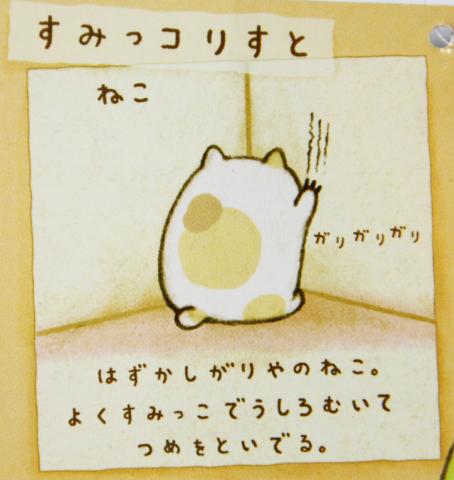 すみっコりすと
ねこ
ガリガリガリ
はずかしがりやのねこ。
よくすみっこでうしろむいて
つめをといでる。